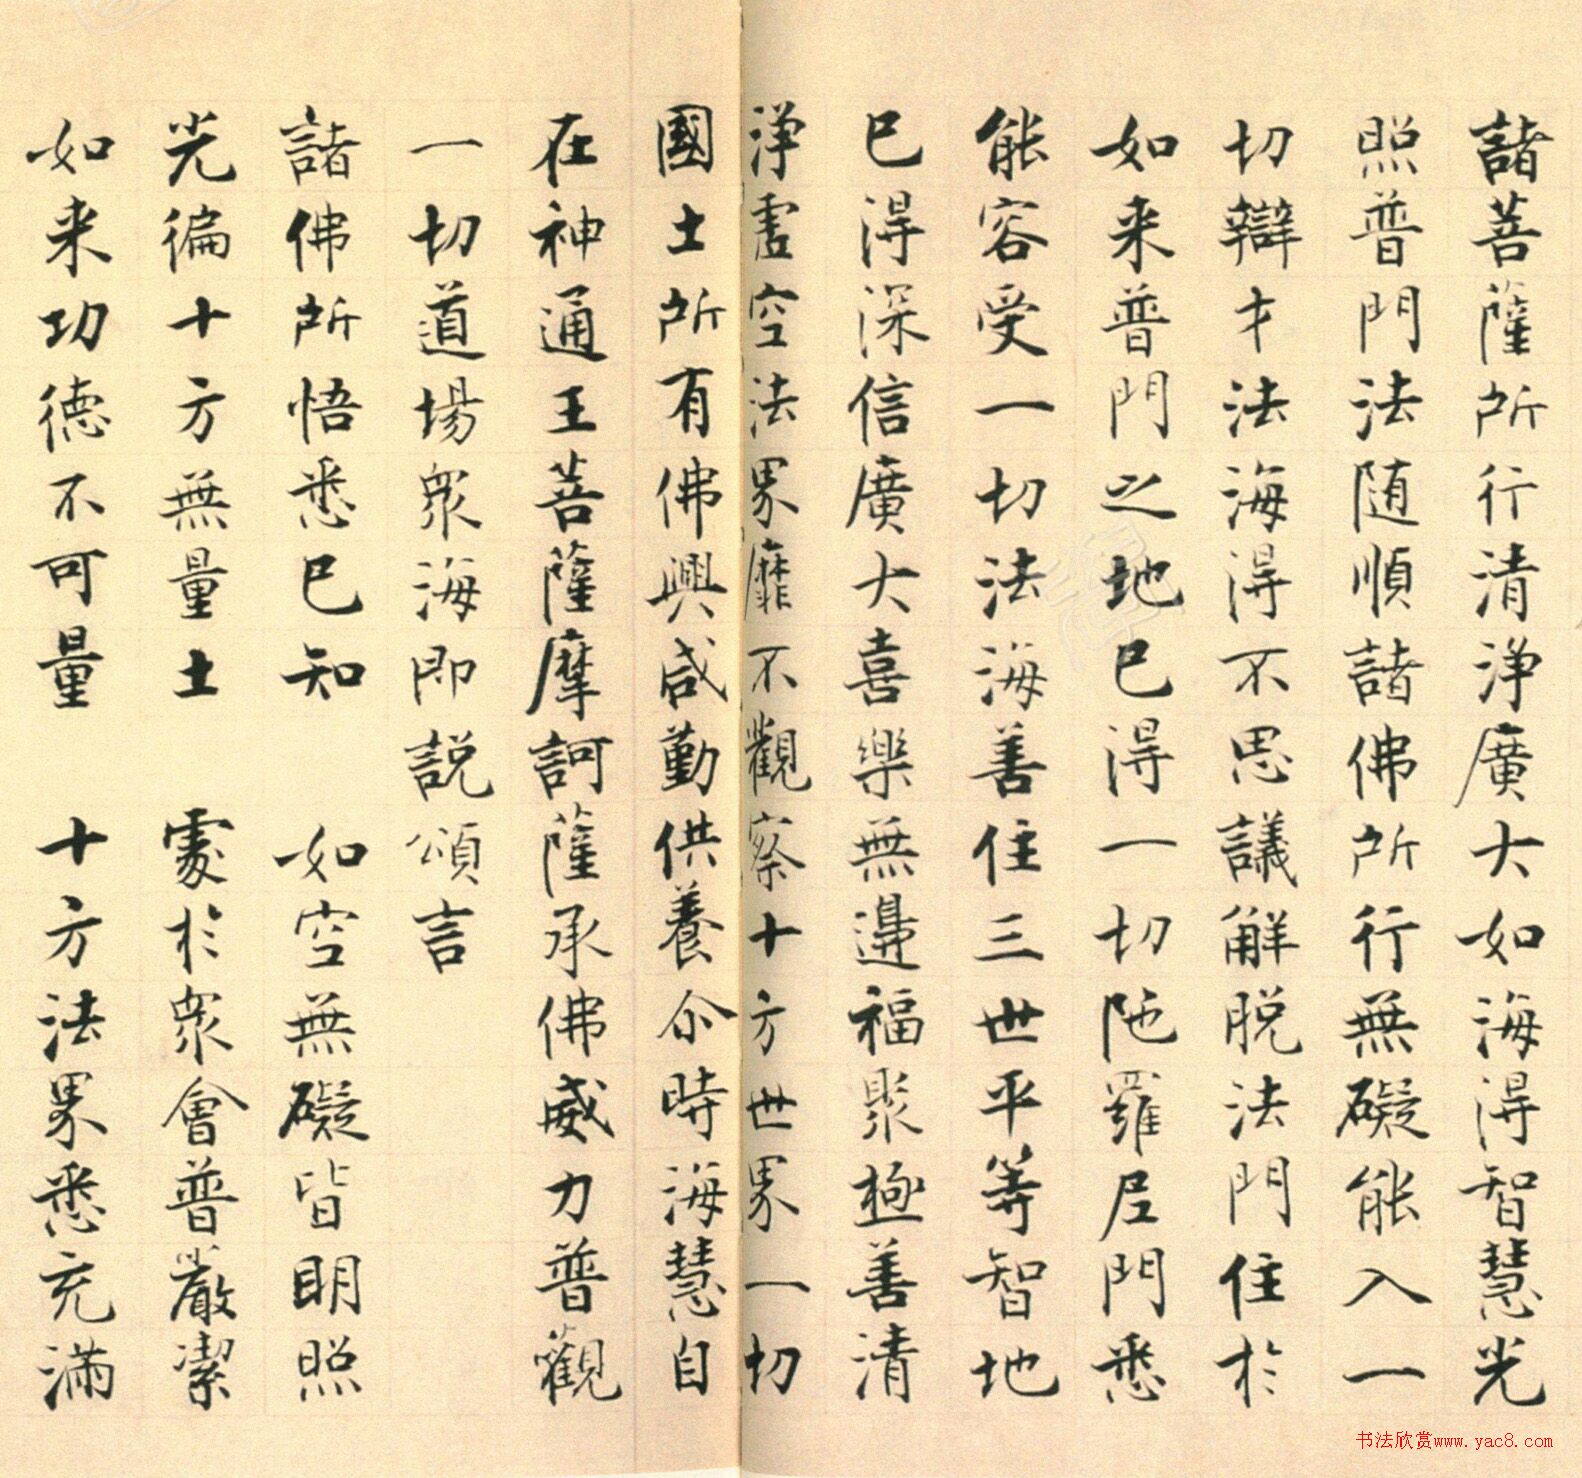 諸菩薩所行清淨廣大如海得智慧光
照普門法随順諸佛所行無礙能入一
切辯才法海得不思議解脱法門住於
如来普門之地已得一切陁羅尼門悉
能容受一切法海善住三世平等智地
已得深信廣大喜樂無邊福聚極善清
淨虚空法界靡不觀察十方世界一切
國土所有佛興咸勤供養尒時海慧自
在神通王菩薩摩訶薩承佛威力普觀
一切道場衆海即説頌言
諸佛所悟悉已知 如空無礙皆明照
光徧十方無量土 處於衆會普嚴潔
如来功德不可量 十方法界悉充滿
书法欣赏www.yac8.com